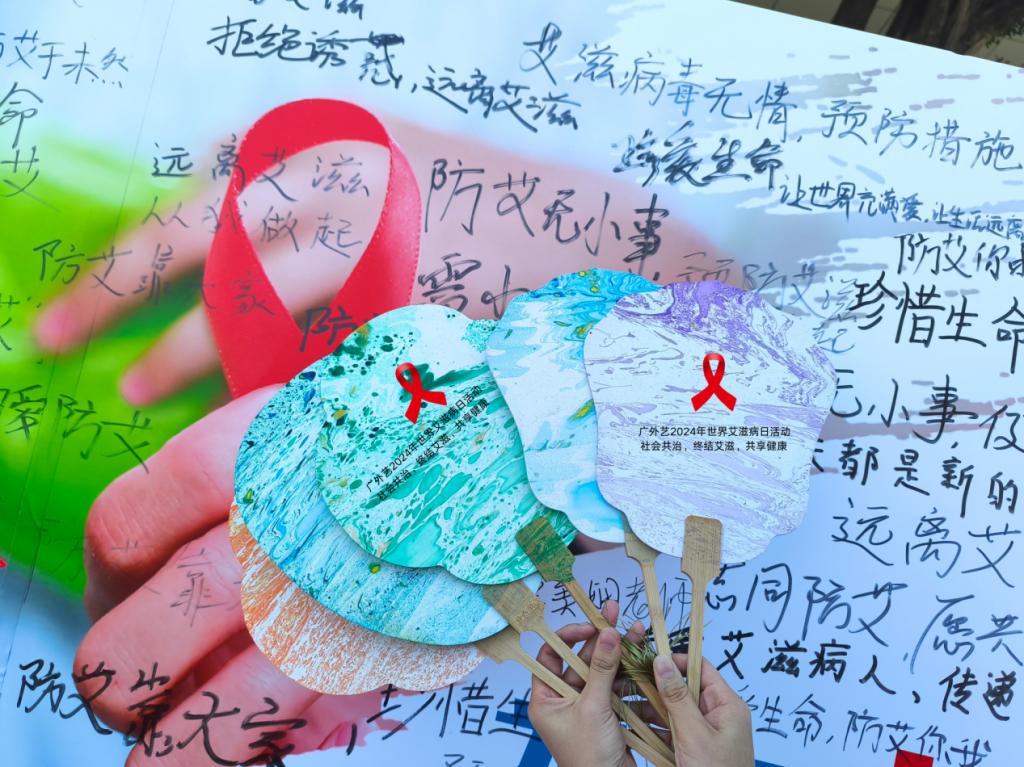 防艾于未然
拒绝诱惑,远离艾滋
艾滋病毒无情,预防措施
珍爱生命
让世界充满爱,让生活远离
命
艾
远离艾滋
从我做起
防艾无小事,
需
预防艾滋
防艾你
珍惜生命
防艾靠大家
防
广外艺2024年世界艾滋病日活动
社会共治,终结艾滋,共享健康
广外艺2024年世界艾滋病日活动
社会共治,终结艾滋,共享健康
防艾
无小事,仅
都是新的
远离艾
靠
志同防艾,愿共
艾滋病人,传递
防艾靠大家,
珍惜生
生命,防艾你我